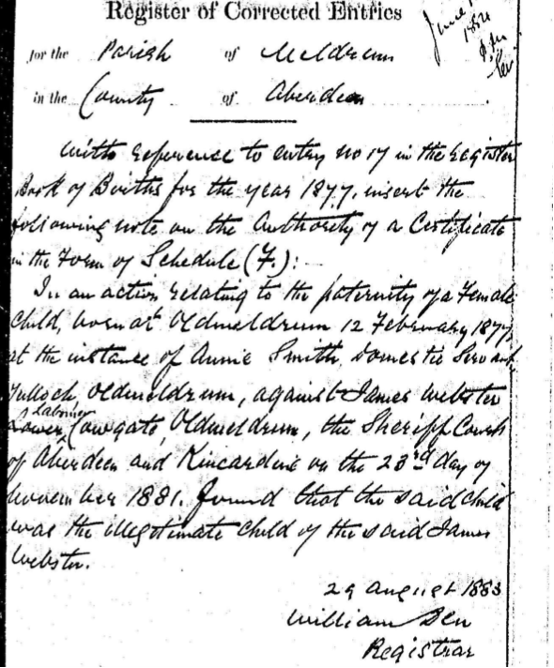 Register of Corrected Entries
June
1884
for the Parish of Meldrum
in the County of Aberdeen
With reference to entry no 17 in the Register
Book of Births for the year 1877, insert the
following note on the Authority of a Certificate
in the Form of Schedule (F.):-
In an action relating to the paternity of a Female
Child, born at Oldmeldrum 12 February 1877,
at the instance of Annie Smith, Domestic Servant,
Tulloch, Oldmeldrum, against James Webster
Labourer
Lower Cowgate, Oldmeldrum, the Sheriff Court
of Aberdeen and Kincardine on the 23rd day of
November 1881. found that the said child
was the illegitimate child of the said James
Webster.
29 August 1883
William
Registrar